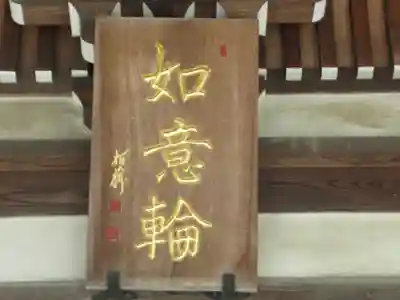 如意輪